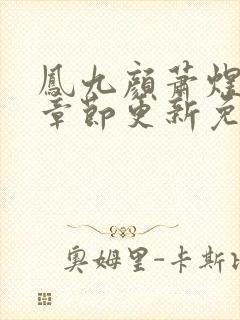 鳳九顏蕭煌
章節更新免
奧姆里-卡斯比